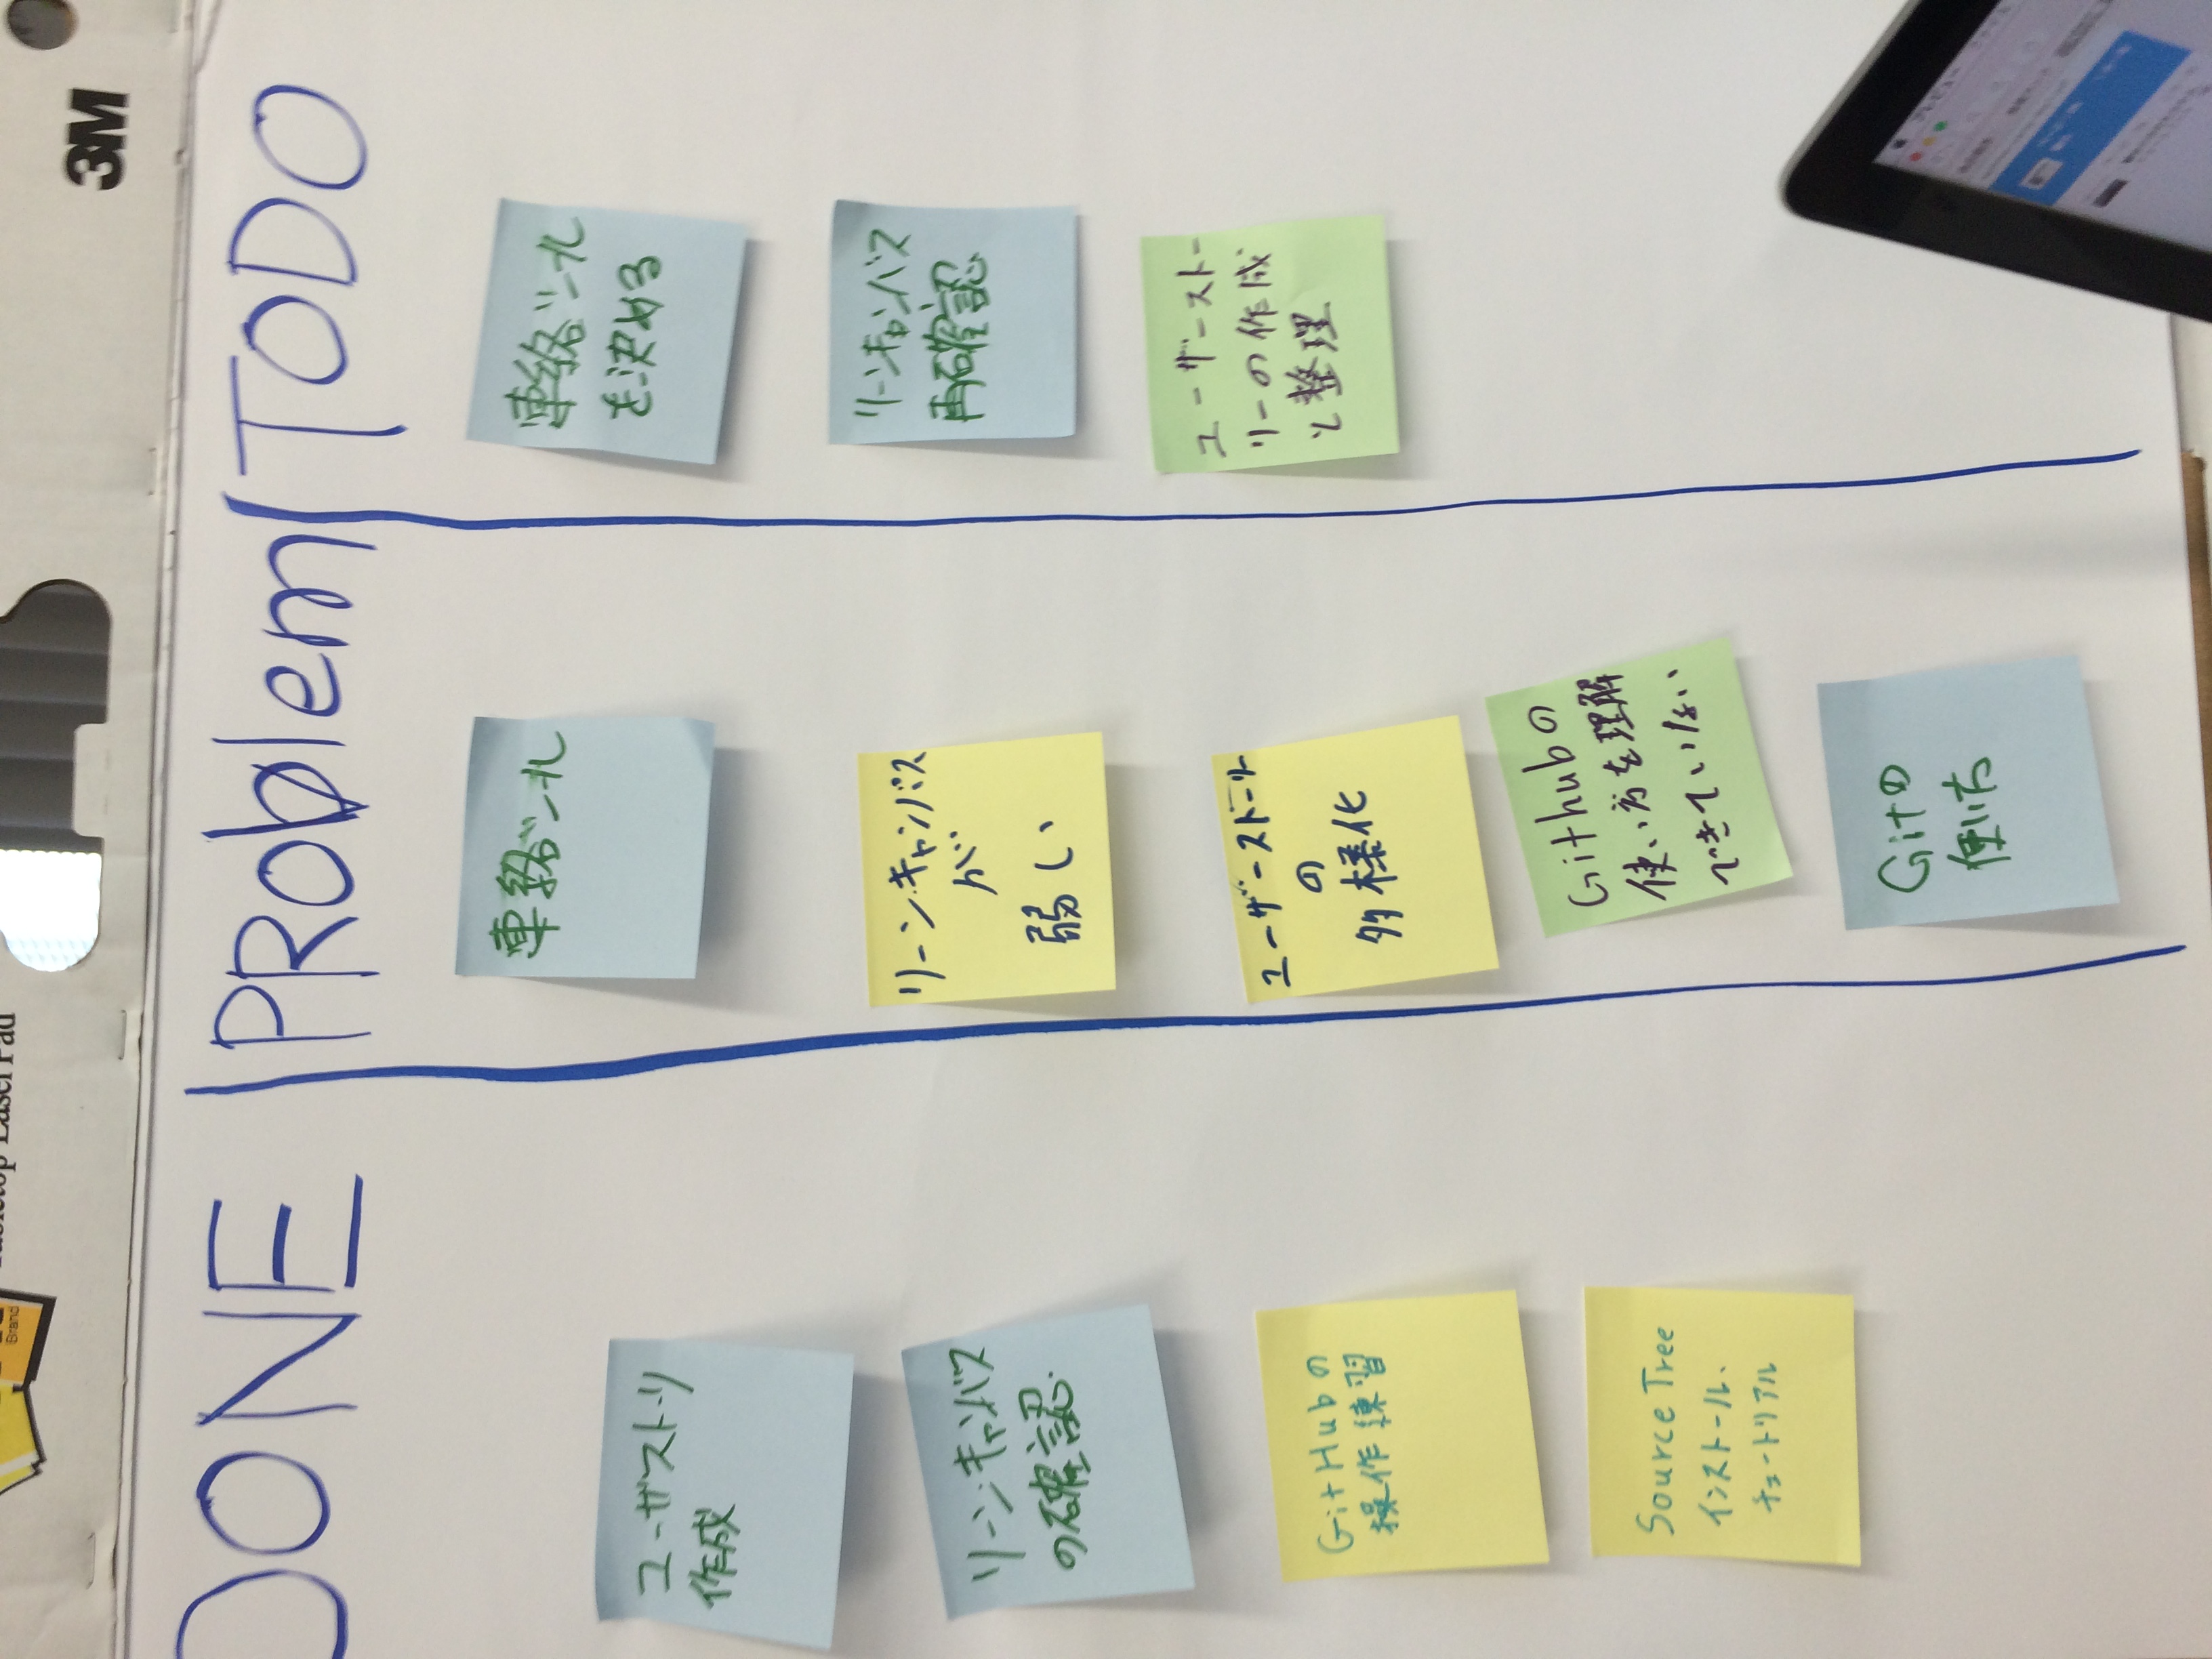 Brand
Tabletop Easel Pad
3M
DONE
PRoblem
TODO
ユーザストーリ
作成
リーンキャンバス
の確認
GitHubの
操作練習
Source Tree
インストール、
チュートリアル
連絡ツール
リーンキャンバス
が
弱い
ユーザーストーリー
の
多様化
Githubの
使い方を理解
できていない
Gitの
使い方
連絡ツール
を決める
リーンキャンバス
再確認
ユーザーストー
リーの作成
と整理
プレビュー